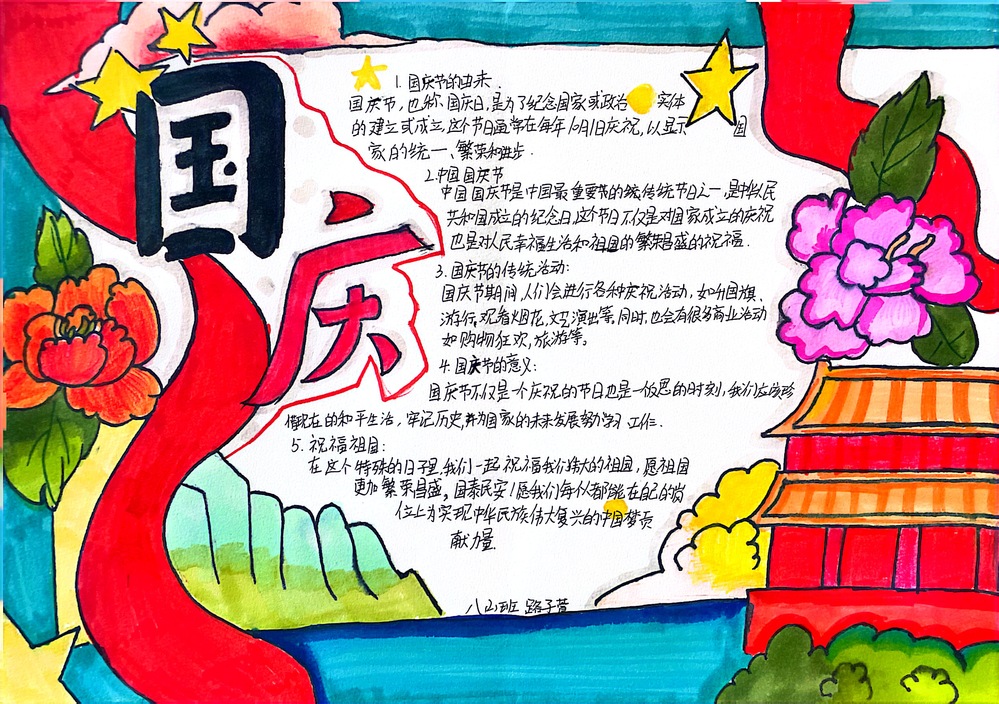 国庆
1. 国庆节的由来.
国庆节，也称国庆日，是为了纪念国家或政治实体
的建立或成立，这个节日通常在每年10月1日庆祝，以显示国
家的统一、繁荣和进步.
2.中国国庆节
中国国庆节是中国最重要节的统传统节日之一，是中华人民
共和国成立的纪念日，这个节日不仅是对国家成立的庆祝
也是对人民幸福生活和祖国的繁荣昌盛的祝福.
3. 国庆节的传统活动：
国庆节期间，人们会进行各种庆祝活动，如升国旗、
游行，观看烟花，文艺演出等，同时，也会有很多商业活动
如购物狂欢，旅游等。
4. 国庆节的意义：
国庆节不仅是一个庆祝的节日也是一个反思的时刻，我们应该珍
惜现在的和平生活，牢记历史，并为国家的未来发展努力学习 工作.
5. 祝福祖国：
在这个特殊的日子里，我们一起祝福我们伟大的祖国，愿祖国
更加繁荣昌盛，国泰民安！愿我们每个人都能在自己的岗
位上为实现中华民族伟大复兴的中国梦贡
献力量.